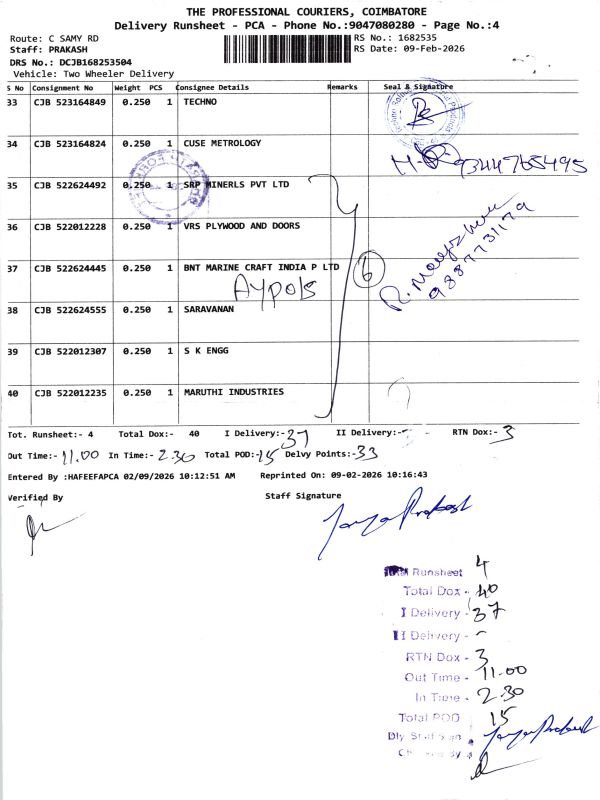 THE PROFESSIONAL COURIERS, COIMBATORE
Delivery Runsheet - PCA - Phone No.:9047080280 - Page No.:4
Route: C SAMY RD
RS No.: 1682535
Staff: PRAKASH
RS Date: 09-Feb-2026
DRS No.: DCJB168253504
Vehicle: Two Wheeler Delivery
S No Consignment No Weight PCS Consignee Details Remarks Seal & Signature
33 CJB 523164849 0.250 1 TECHNO
34 CJB 523164824 0.250 1 CUSE METROLOGY
9344765495
35 CJB 522624492 0.250 1 SRP MINERLS PVT LTD
36 CJB 522012228 0.250 1 VRS PLYWOOD AND DOORS
37 CJB 522624445 0.250 1 BNT MARINE CRAFT INDIA P LTD
6
38 CJB 522624555 0.250 1 SARAVANAN
39 CJB 522012307 0.250 1 S K ENGG
40 CJB 522012235 0.250 1 MARUTHI INDUSTRIES
Tot. Runsheet:- 4 Total Dox:- 40 I Delivery:- 37 II Delivery:- RTN Dox:- 3
Out Time:- 11.00 In Time:- 2.30 Total POD:- 15 Delvy Points:- 33
Entered By :HAFEEFAPCA 02/09/2026 10:12:51 AM Reprinted On: 09-02-2026 10:16:43
Verified By Staff Signature
Runsheet 4
Total Dox - 40
I Delivery - 37
II Delivery - -
RTN Dox - 3
Out Time - 11.00
In Time - 2.30
Total POD 15